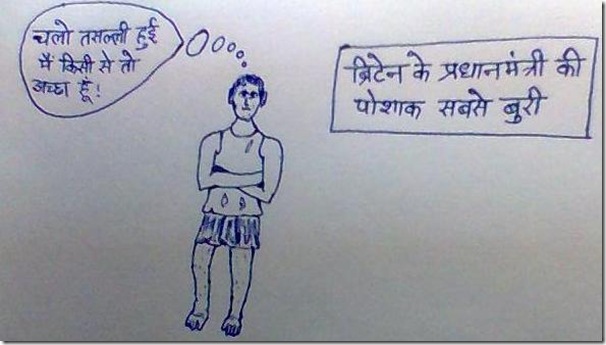 चलो तसल्ली हुई
मैं किसी से तो
अच्छा हूँ!
ब्रिटेन के प्रधानमंत्री की
पोशाक सबसे बुरी